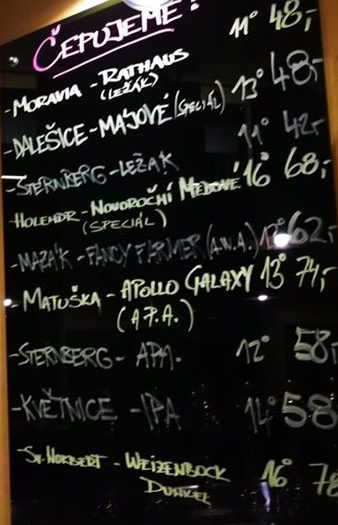 ČEPUJEME:
-MORAVIA - RATHAUS 11° 48,-
(LEŽÁK)
-DALEŠICE - MÁJOVÉ (SPECIÁL) 13° 48,-
-STERNBERG - LEŽÁK 11° 42,-
-HOLENDR - NOVOROČNÍ MEDOVÉ 16° 68,-
(SPECIÁL)
-MAZÁK - FANCY FARMER (A.W.A.) 62,-
-MATUŠKA - APOLLO GALAXY 13° 74,-
(A.P.A.)
-STERNBERG - APA. 12° 58,-
-KVĚTNICE - IPA 14° 58
-SV. NORBERT - WEIZENBOCK 16° 78
DUNKEL